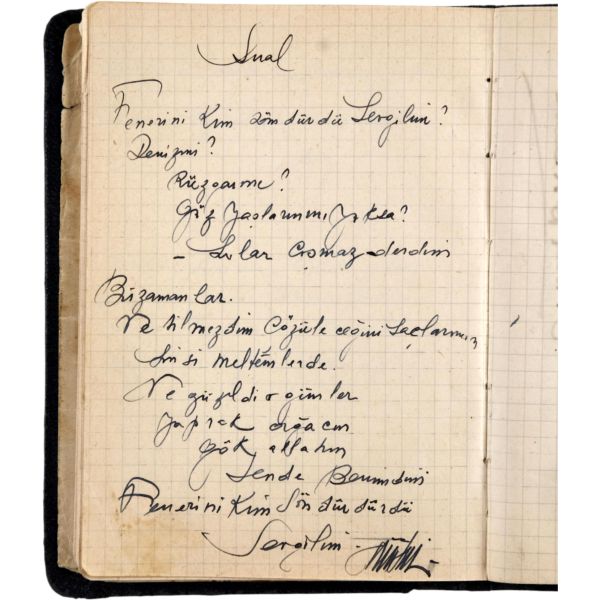 Sual
Fenerini Kim söndürdü Sevgilim?
Denizmi?
Rüzgarmı?
Göz yaşlarınmı, yoksa?
- Sular Coşmaz derdim
Bir zamanlar.
Ve bilmezdim Çözüleceğini Saçlarının,
Sinsi meltemlerde.
Ne güzeldi o günler
yaprak ağacın
gök allahın
Sende Benimdin
Fenerini Kim Söndürdü
Sevgilim